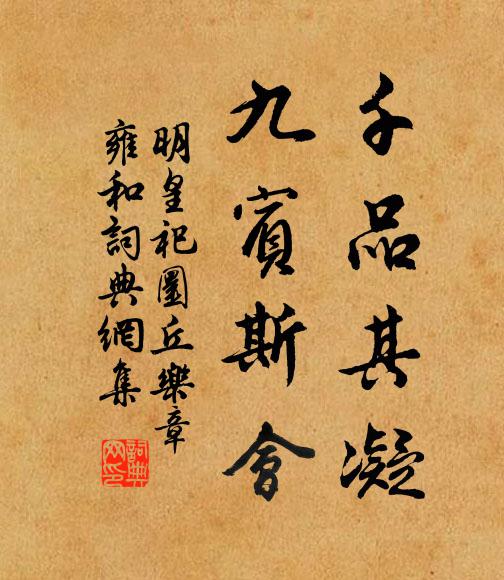 千品其凝
九賓斯會
明皇祀圜丘樂章
雍和詞典網集
詞典
网印